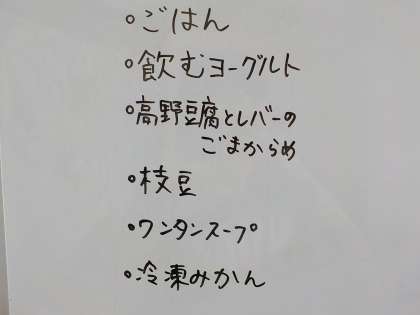 •ごはん
•飲むヨーグルト
•高野豆腐とレバーの
ごまからめ
•枝豆
•ワンタンスープ
•冷凍みかん